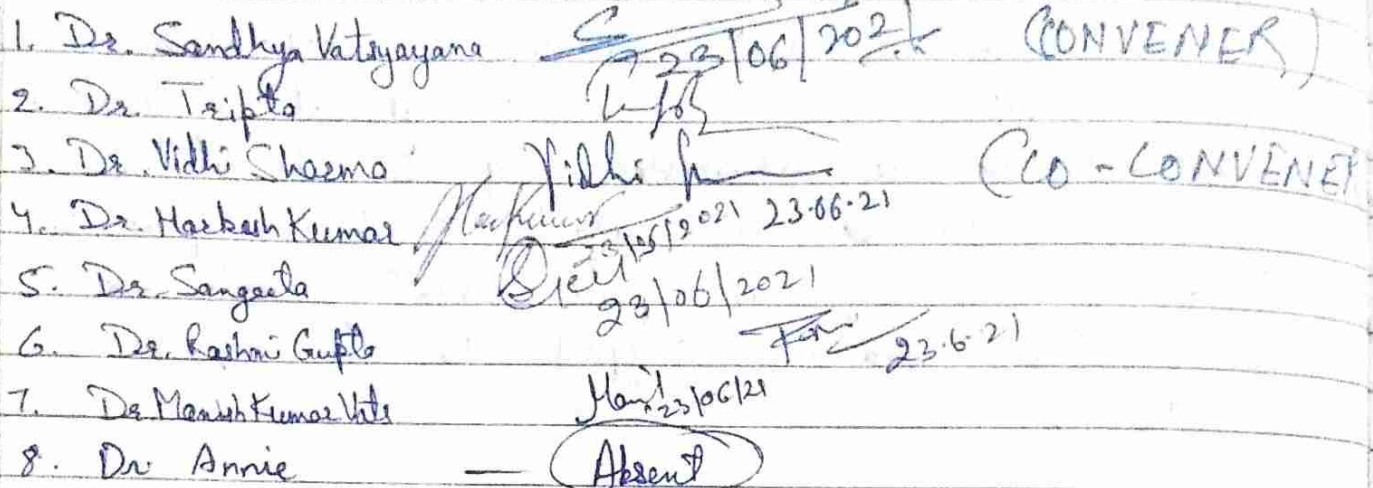 1. Dr. Sandhya Vatsyayana 23/06/2021 (CONVENER)
2. Dr. Tripta
3. Dr. Vidhi Sharma Vidhi (CO-CONVENER
4. Dr. Harkesh Kumar 23.06.21
5. Dr. Sangeeta 23/06/2021
6. Dr. Rashmi Gupta 23.6.21
7. Dr Manish Kumar Vats 23/06/21
8. Dr. Annie — Absent